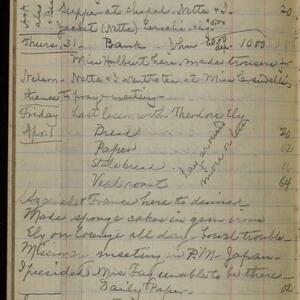 Supper at chapel - Nettie & I - 20
Jacket (Nettie)
Thurs. 31 - Bank - John 1000
Miss Hulbert here, made trousers for
Nelson - Nettie & I went to tea at Miss
thence to prayer-meeting -
Friday Last lesson with Theodore Ely
Apr. 1 Bread 20
Paper 02
Stale bread 16
Veal roast 64
Lay around more or less
& Frances here to dinner
Made sponge cakes in gem irons
Ely on lounge all day. Bowel trouble -
Mission meeting in P.M. - Japan -
I presided Mrs Fay unable to be there -
Daily Paper - 02